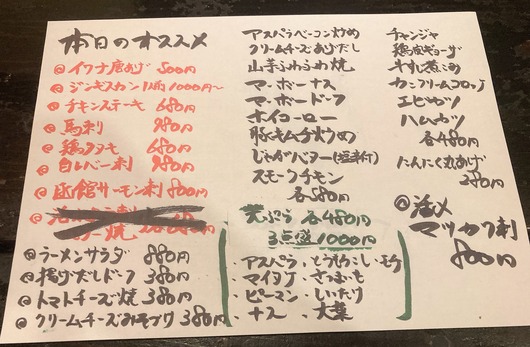 本日のオススメ
◎イワナ唐あげ 500円
◎ジンギスカン 1人前 1000円〜
◎チキンステーキ 680円
◎馬刺 980円
◎鶏タタキ 680円
◎白レバー刺 980円
◎函館サーモン刺 800円
◎ラーメンサラダ 880円
◎揚げだしドーフ 380円
◎トマトチーズ焼 380円
◎クリームチーズみそづけ 380円
アスパラベーコン炒め
クリームチーズあげだし
山芋ふわふわ焼
マーボーナス
マーボードーフ
ホイコーロー
豚キムチ炒め
じゃがバター(塩辛付)
スモークチキン
各580円
天ぷら 各480円
3点盛 1000円
・アスパラ・とうもろこし・モチ
・マイタケ・さつまいも
・ピーマン・しいたけ
・ナス・大葉
チャンジャ
鶏皮ギョーザ
牛すじ煮こみ
カニクリームコロッケ
エビカツ
ハムカツ
各480円
にんにく丸あげ
280円
◎活〆
マツカワ刺
800円